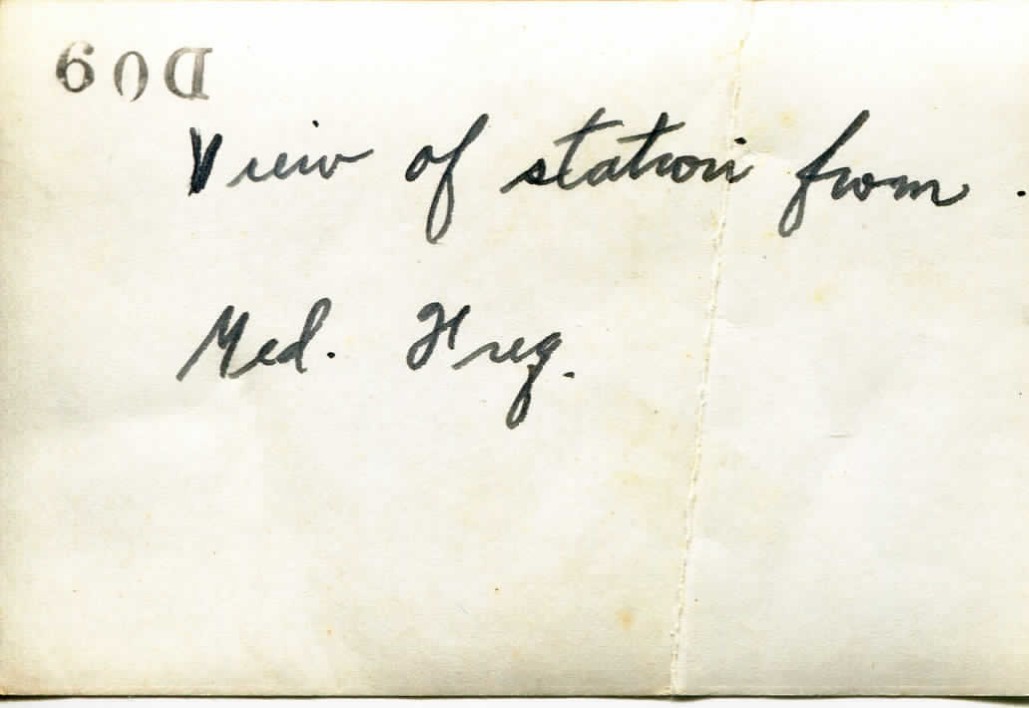 D09
View of station from .
Med. Freq.